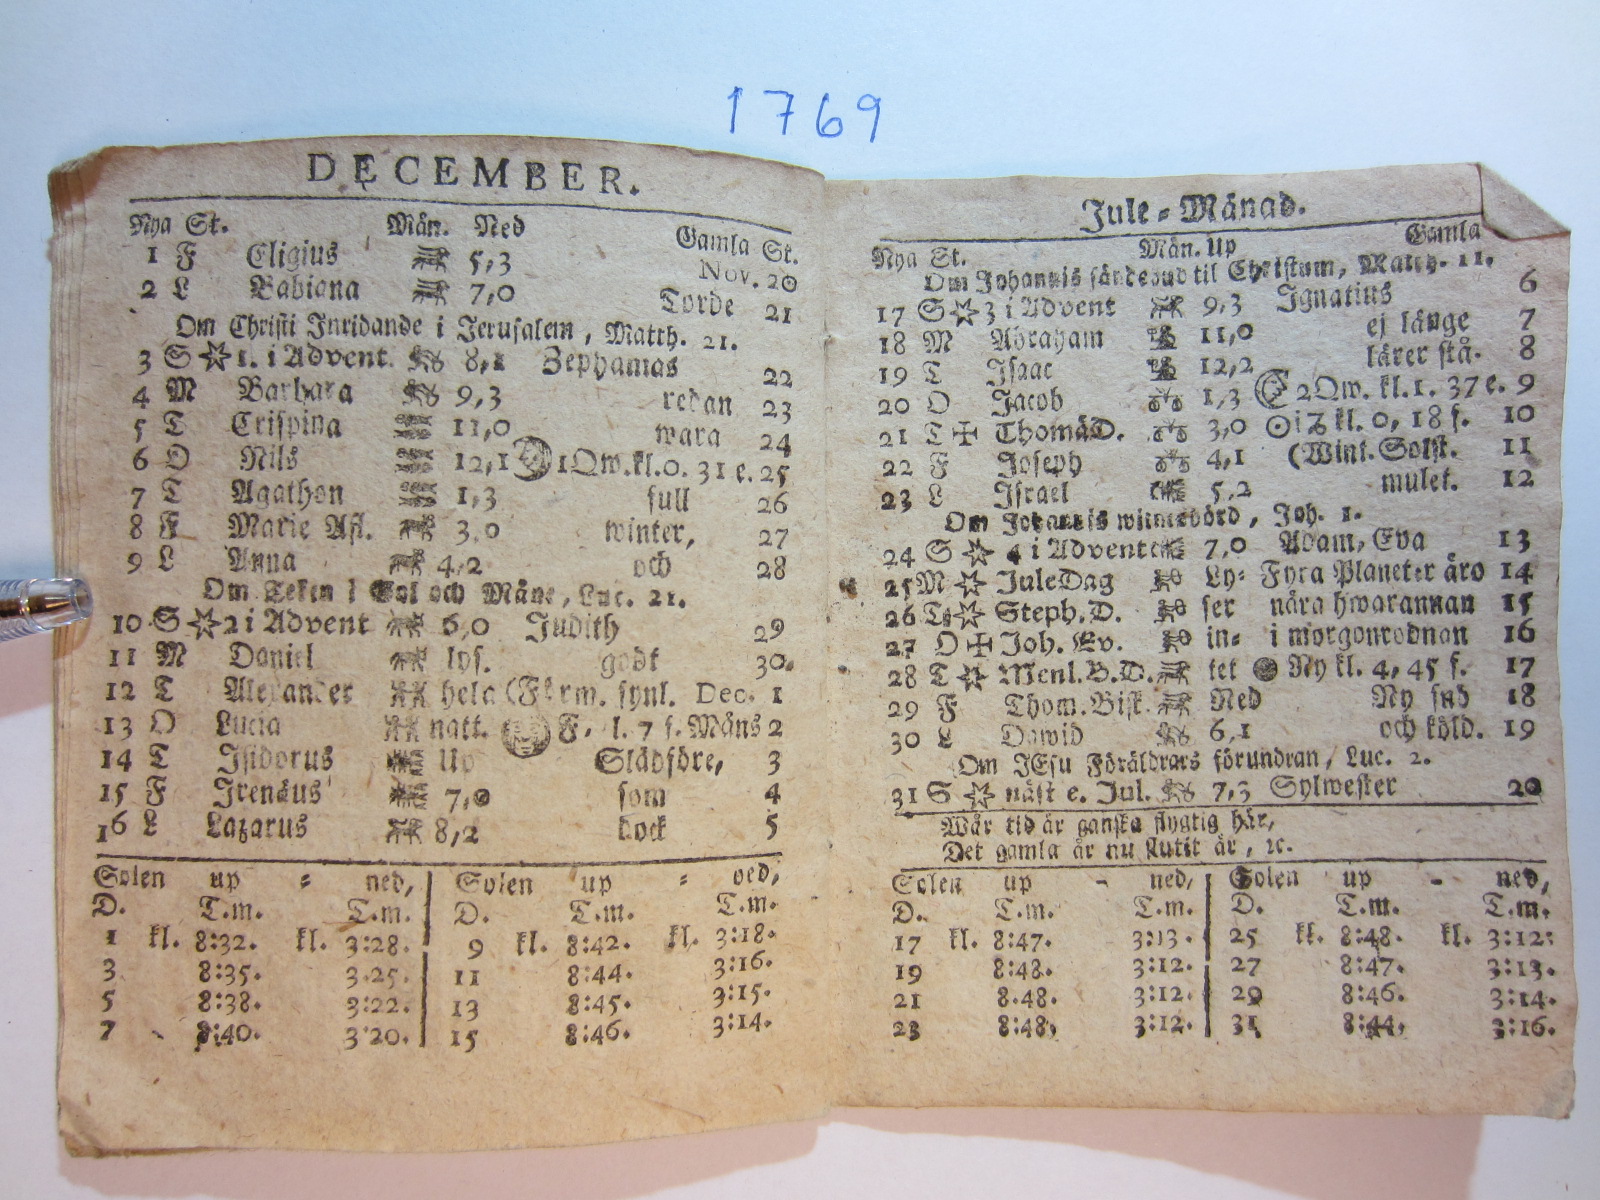 1769
DECEMBER.
Nya St. Mån. Ned Gamla St.
1 F Eligius 5,3 Nov. 20
2 L Babiana 7,0 Torde 21
Om Christi Inridande i Jerusalem, Matth. 21.
3 S 1. i Advent. 8,1 Zephanias 22
4 M Barbara 9,3 redan 23
5 T Crispina 11,0 wara 24
6 O Nils 12,1 1Qw.kl.0. 31 e. 25
7 T Agathon 1,3 full 26
8 F Marie Afl. 3,0 winter, 27
9 L Anna 4,2 och 28
Om Tekn i Sol och Måne, Luc. 21.
10 S 2 i Advent 6,0 Judith 29
11 M Daniel lys. godt 30.
12 T Alexander hela (Förm. synl. Dec. 1
13 O Lucia natt. F. l. 7 f. Måns 2
14 T Isidorus Up Slädföre, 3
15 F Irenäus 7,0 som 4
16 L Lazarus 8,2 dock 5
Solen up = ned, Solen up = ned,
D. T.m. T.m. D. T.m. T.m.
1 kl. 8:32. kl. 3:28. 9 kl. 8:42. kl. 3:18.
3 8:35. 3:25. 11 8:44. 3:16.
5 8:38. 3:22. 13 8:45. 3:15.
7 8:40. 3:20. 15 8:46. 3:14.
Jule=Månad.
Nya St. Mån. Up Gamla
Om Johannis sändebud til Christum, Matth. 11.
17 S 3 i Advent 9,3 Ignatius 6
18 M Abraham 11,0 ej länge 7
19 T Isaac 12,2 lärer stå. 8
20 O Jacob 1,3 2Qw. kl.1. 37 e. 9
21 T Thomä D. 3,0 ☉ i ♑ kl. 0, 18 f. 10
22 F Joseph 4,1 (Wint. Solst. 11
23 L Israel 5,2 mulet. 12
Om Johannis witnesbörd, Joh. 1.
24 S 4 i Advent 7,0 Adam, Eva 13
25 M JuleDag Ly= Fyra Planeter äro 14
26 T Steph. D. ser nära hwarannan 15
27 O Joh. Ev. in= i morgonrodnan 16
28 T Menl. B. D. tet Ny kl. 4, 45 f. 17
29 F Thom. Bisk. Ned Ny snö 18
30 L Dawid 6,1 och köld. 19
Om JEsu Föräldrars förundran, Luc. 2.
31 S näst e. Jul. 7,3 Sylwester 20
Wår tid är ganska flygtig här,
Det gamla år nu slutit är, ꝛc.
Solen up - ned, Solen up - ned,
D. T.m. T.m. D. T.m. T.m.
17 kl. 8:47. 3:13. 25 kl. 8:48. kl. 3:12:
19 8:48. 3:12. 27 8:47. 3:13.
21 8.48. 3:12. 29 8:46. 3:14.
23 8:48, 3:12. 31 8:44, 3:16.